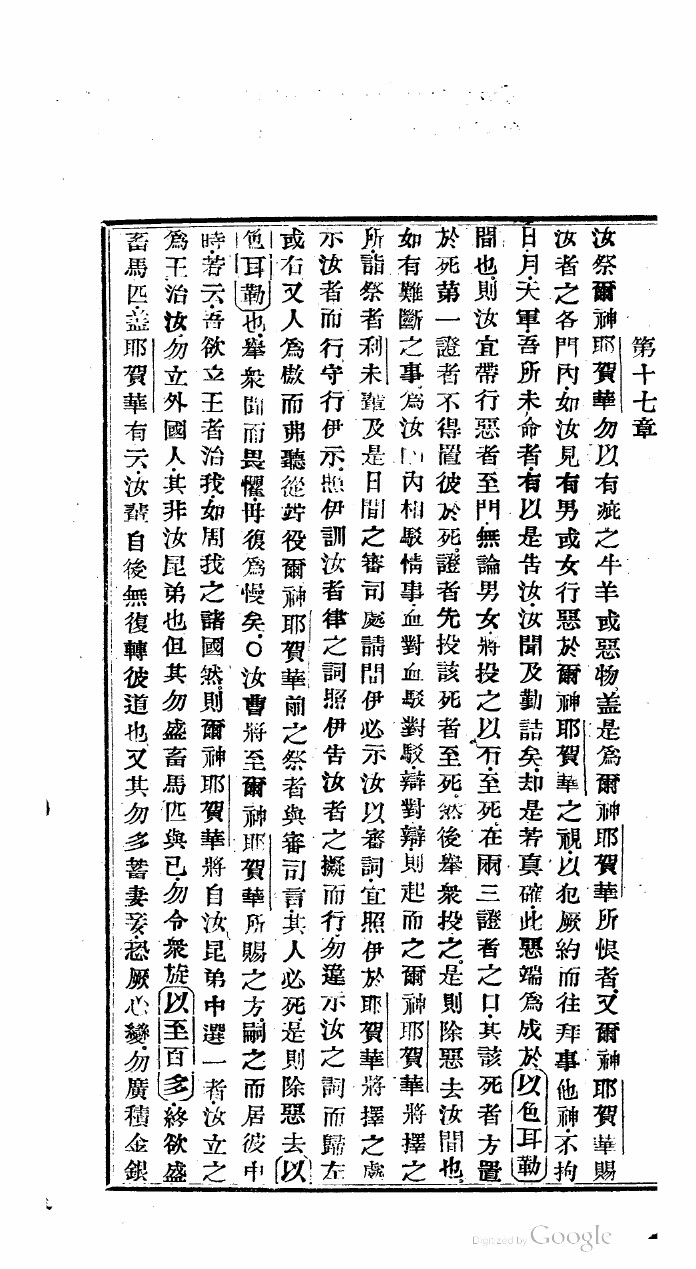 第十七章
汝祭爾神耶賀華勿以有疵之牛羊或惡物盖是為爾神耶賀華所恨者又爾神耶賀華賜
汝者之各門內如汝見有男或女行惡於爾神耶賀華之視以犯厥約而往拜事他神不拘
日月天軍吾所未命者有以是告汝汝聞及勤詰矣却是若真確此惡端為成於以色耳勒
間也則汝宜帶行惡者至門無論男女將投之以石至死在兩三證者之口其該死者方置
於死第一證者不得置彼於死證者先投該死者至死然後舉衆投之是則除惡去汝間也
如有難斷之事為汝門內相駁情事血對血駁對駁辯對辯則起而之爾神耶賀華將擇之
所詣祭者利未輩及是日間之審司處請問伊必示汝以審詞宜照伊於耶賀華將擇之處
示汝者而行守行伊示照伊訓汝者律之詞照伊告汝者之擬而行勿違示汝之詞而歸左
或右又人為傲而弗聽從竚役爾神耶賀華前之祭者與審司言其人必死是則除惡去以
色耳勒也舉衆聞而畏懼毋復為慢矣〇汝曹將至爾神耶賀華所賜之方嗣之而居彼中
時若云吾欲立王者治我如周我之諸國然則爾神耶賀華將自汝昆弟中選一者汝立之
為王治汝勿立外國人其非汝昆弟也但其勿盛畜馬匹與已勿令衆旋以至百多終欲盛
畜馬匹盖耶賀華有云汝輩自後無復轉彼道也又其勿多蓄妻妾恐厥心變勿廣積金銀
Digitized by Google